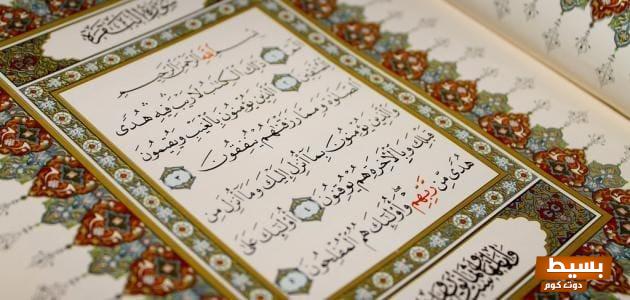 سورة البقرة
بسم الله الرحمن الرحيم
الم ۝١ ذلك الكتب لا ريب فيه هدى
للمتقين ۝٢ الذين يؤمنون بالغيب ويقيمون
الصلوة ومما رزقنهم ينفقون ۝٣
والذين يؤمنون بما أنزل إليك وما أنزل من
قبلك وبالآخرة هم يوقنون ۝٤ أولئك على
هدى من ربهم وأولئك هم المفلحون ۝٥
بسيط
دوت كوم